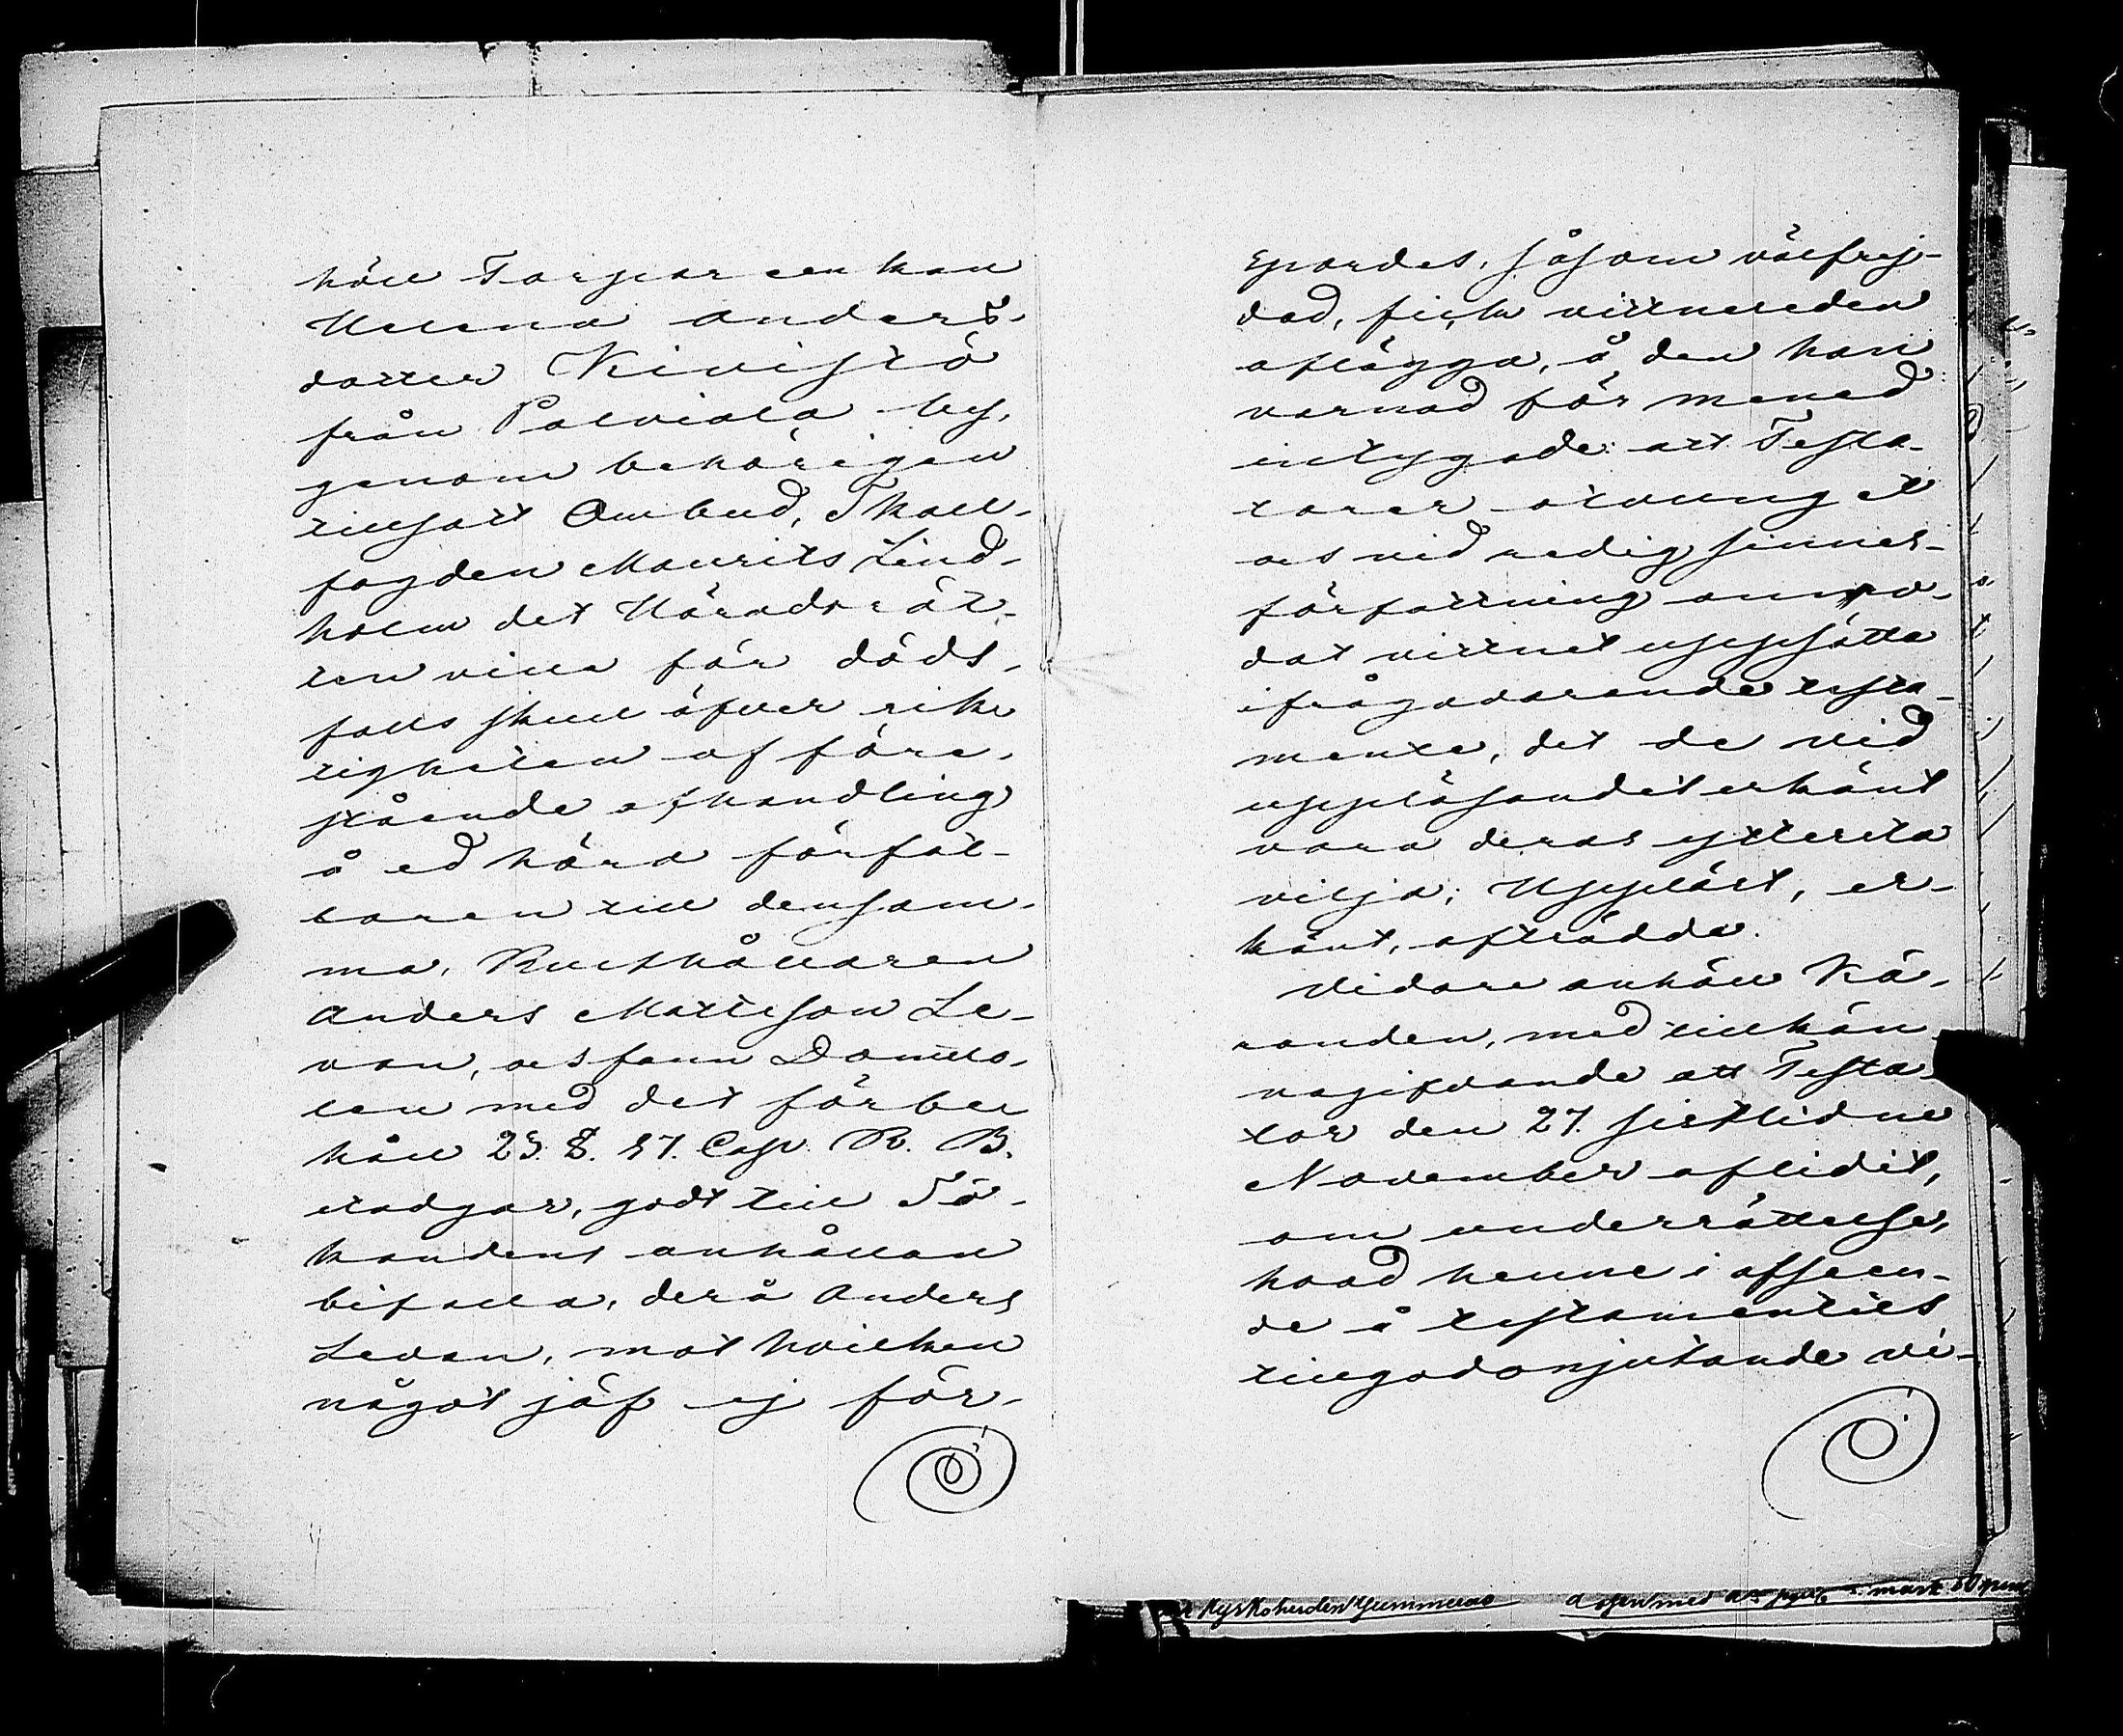 höll Torparenkan
Helena Anders-
dotter Kivistö
från Palviala by,
genom behörigen
tillsatt Ombud, Skall-
fogden Maurits Lind-
holm det Häradsrät-
ten ville för döds-
falls skull öfver rik-
tigheten af före-
stående afhandling
å ed höra författ-
taren till densam-
ma, Rusthållaren
Anders Mattsson Le-
van, och fann Domsto-
len med det förbe-
håll 23 § 17. Cap. R. B.
stadgar, godt till Sö-
kandens anhållan
bifalla, derå Anders
Levan, mot hvilken
något jäf ej för-
spordes, såsom välfrej-
dad, fick vittneseden
aflägga, å den han
varnad för mened
intygade: att Testa-
torer otvunget
och vid redig sinnes-
författning anmo-
dat vittnet uppsätta
ifrågavarande testa-
mente, det de vid
uppläsandet erkänt
vara deras yttersta
vilja; Uppläst, er-
känt, afträdde.
Vidare anhöll Kä-
randen, med tillkän-
nagifvande att Testa-
tor den 27. sistlidne
November aflidit,
om underrättelse,
hvad henne i afseen-
de å testamentets
tillgodonjutande vi-
Kyrkoherden Gummerus
mark 50 penni